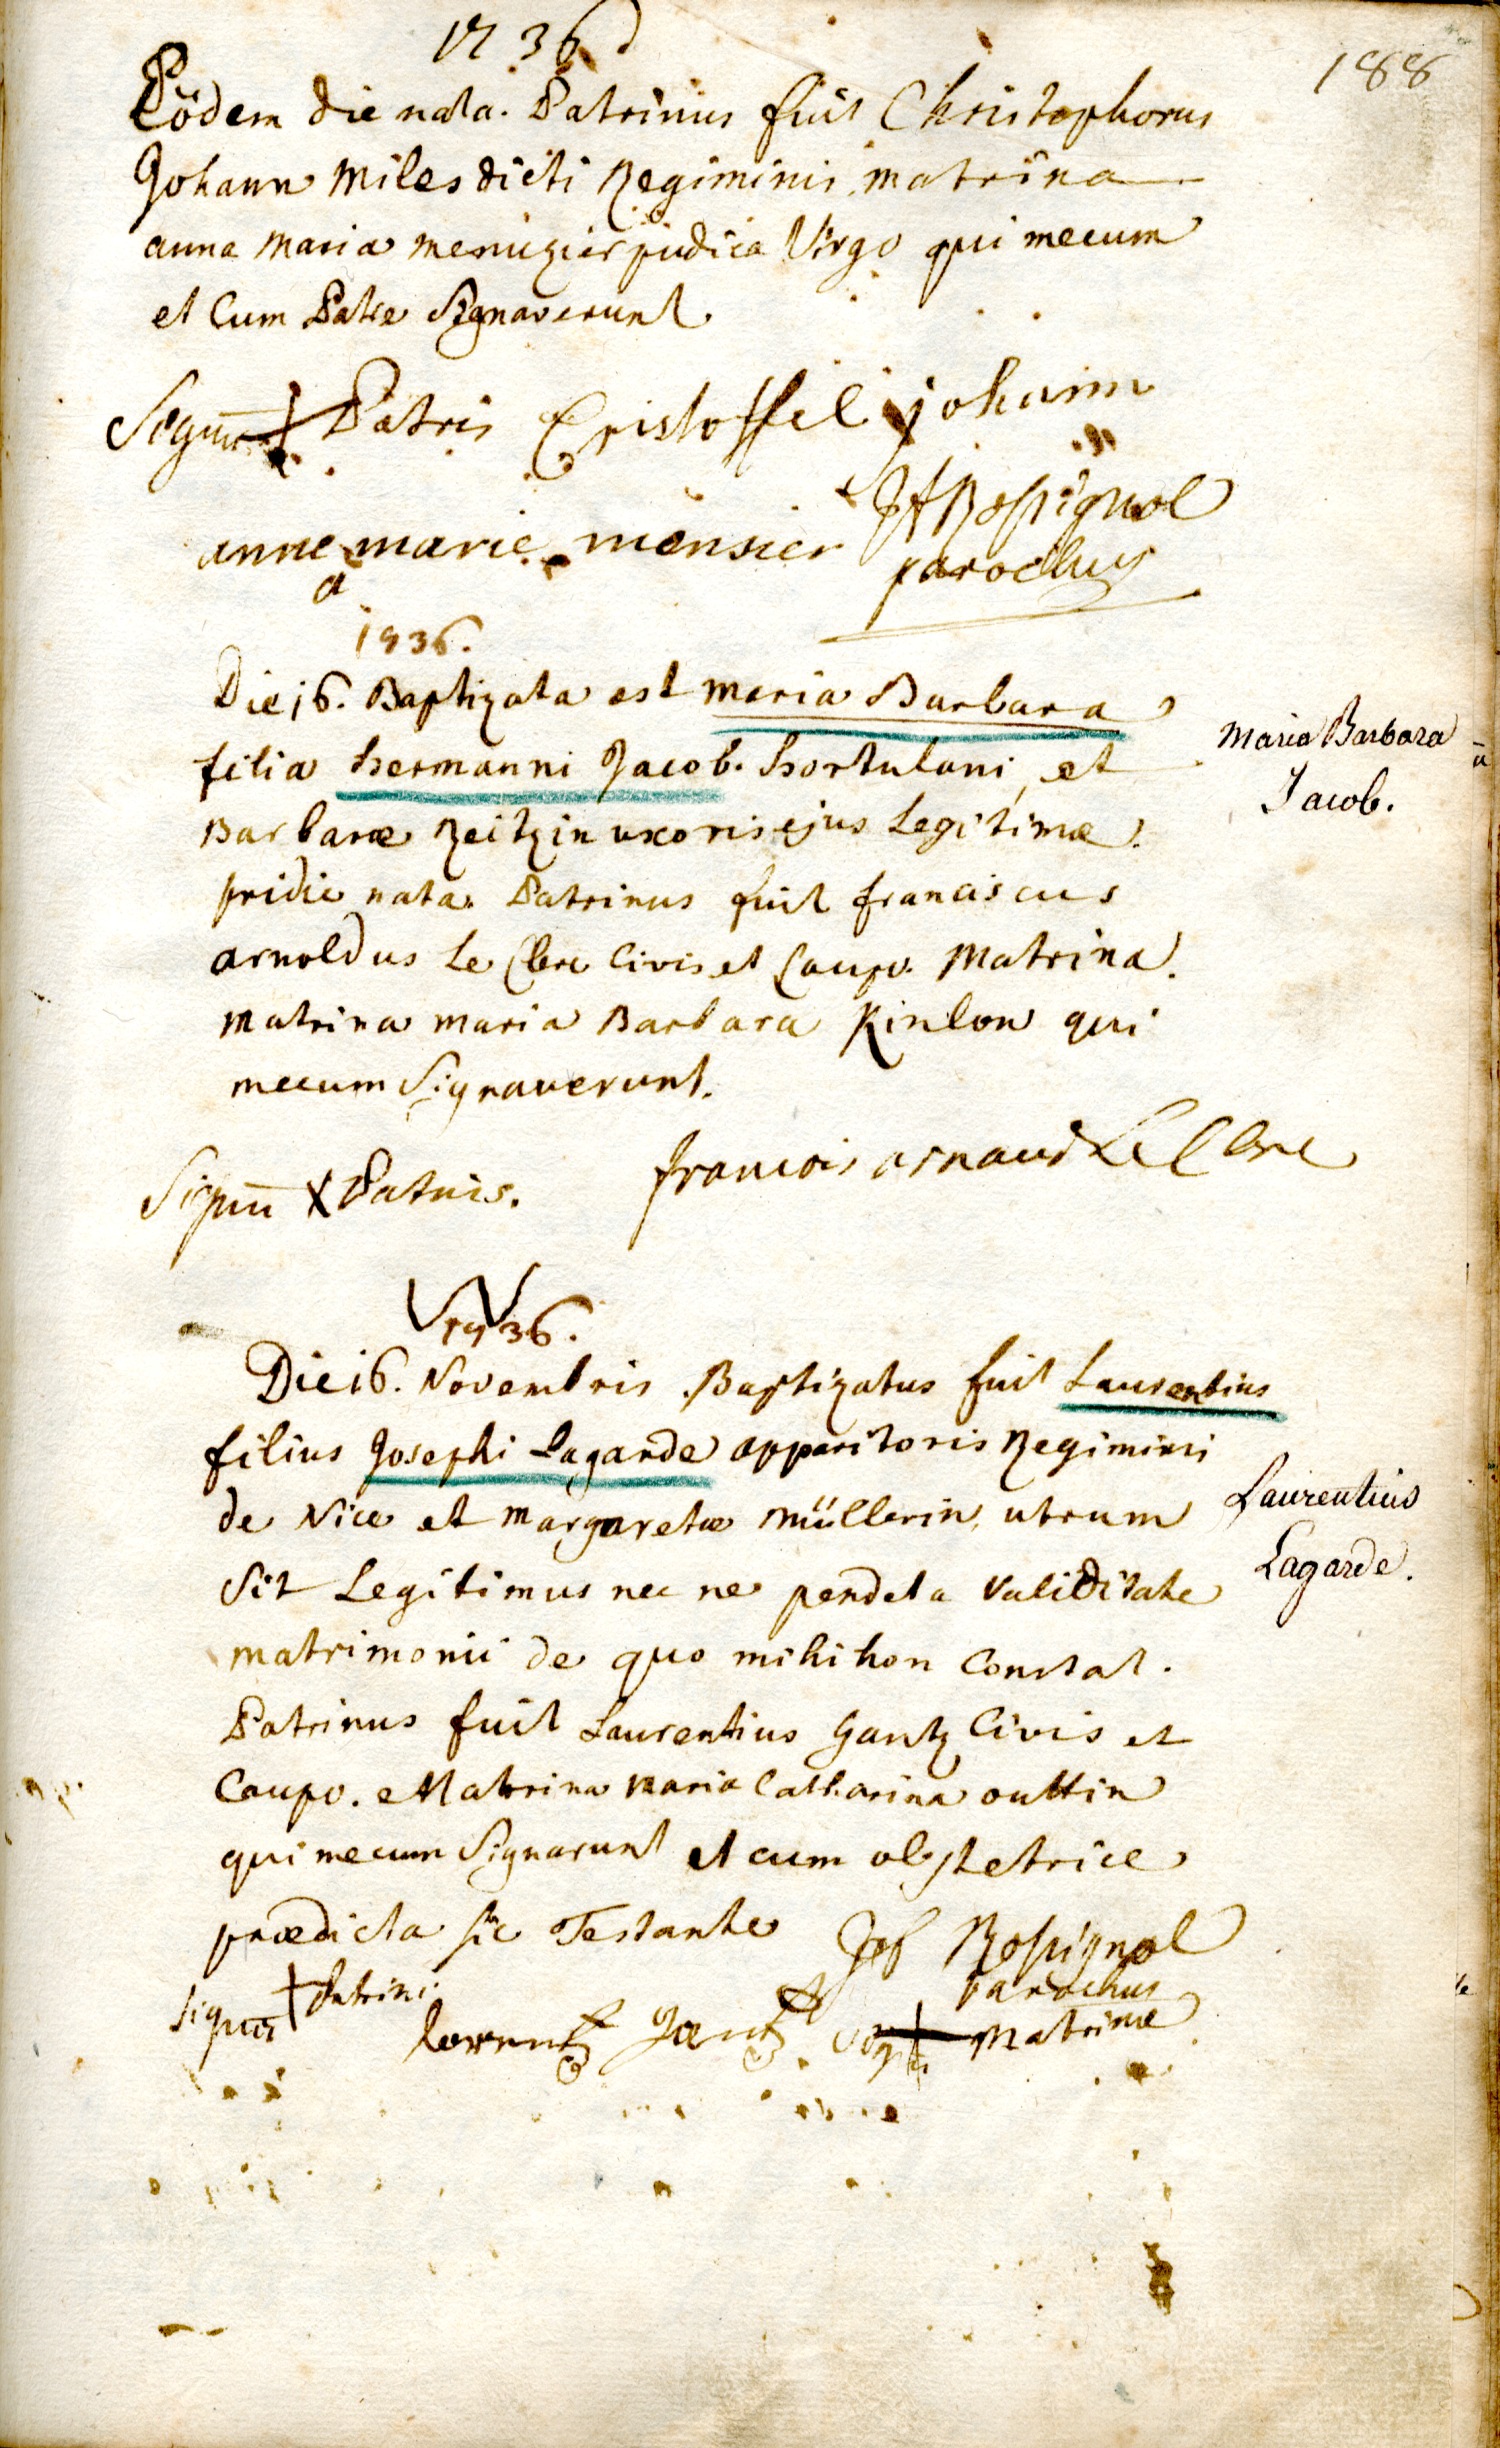 1736
188
Eödem die nata. Patrinus fuit Christophorus
Johann Miles dicti Regiminis matrina
anna Maria menuzier pudica Virgo qui mecum
et Cum Patre Signaverunt
Signū + Patris Cristoffel johann
Rossignol
anne marie mensier
parochus
1736.
Die 16. Baptizata est Maria Barbara
filia hermanni Jacob. hortulani, et
Maria Barbara
Jacob.
Barbaræ Zeitzin uxoris ejus Legitimæ.
pridie nata. Patrinus fuit franciscus
arnoldus Le Clerc Civis et Caupo. Matrina.
Matrina maria Barbara Kinlon qui
mecum Signaverunt.
francois arnaud Le Clerc
Signū X Patris.
1736.
Die 16. Novembris Baptizatus fuit Laurentius
filius Josephi Lagarde apparitoris Regimini
de Nice et Margaretæ Müllerin, utrum
Laurentius
Lagarde.
Sit Legitimus nec ne pendet a validitate
matrimonii de quo mihi non Constat.
Patrinus fuit Laurentius Gantz Civis et
Caupo. Matrina Maria Catharina outtin
qui mecum Signarunt et cum obstetrice
prædicta sic Testante Jos Rossignol
Parochus
Signū + Patrini lorentz Gantz + Matrinæ